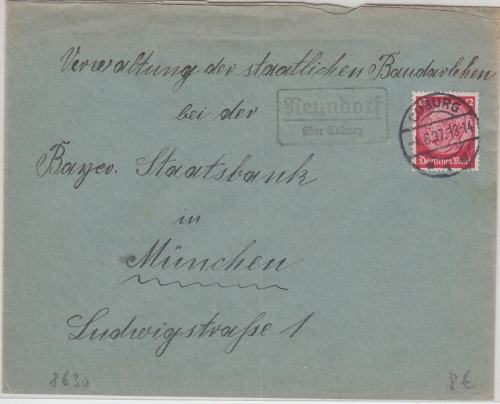 Verwaltung der staatlichen Baudarlehen
bei der
Bayer. Staatsbank
in
München
Ludwigstraße 1
Neundorf
über Coburg
COBURG
.37.13-14
12
Deutsches Reich
8630
8€